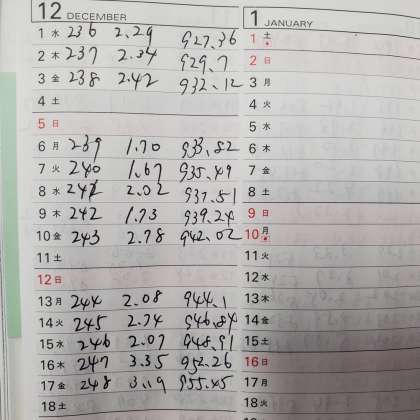 12 DECEMBER
1 水 236 2.29 927.36
2 木 237 2.34 929.7
3 金 238 2.42 932.12
4 土
5 日
6 月 239 1.70 933.82
7 火 240 1.67 935.49
8 水 241 2.02 937.51
9 木 242 1.73 939.24
10 金 243 2.78 942.02
11 土
12 日
13 月 244 2.08 944.1
14 火 245 2.74 946.84
15 水 246 2.07 948.91
16 木 247 3.35 952.26
17 金 248 3.19 955.45
18 土
1 JANUARY
1 土
2 日
3 月
4 火
5 水
6 木
7 金
8 土
9 日
10 月
11 火
12 水
13 木
14 金
15 土
16 日
17 月
18 火